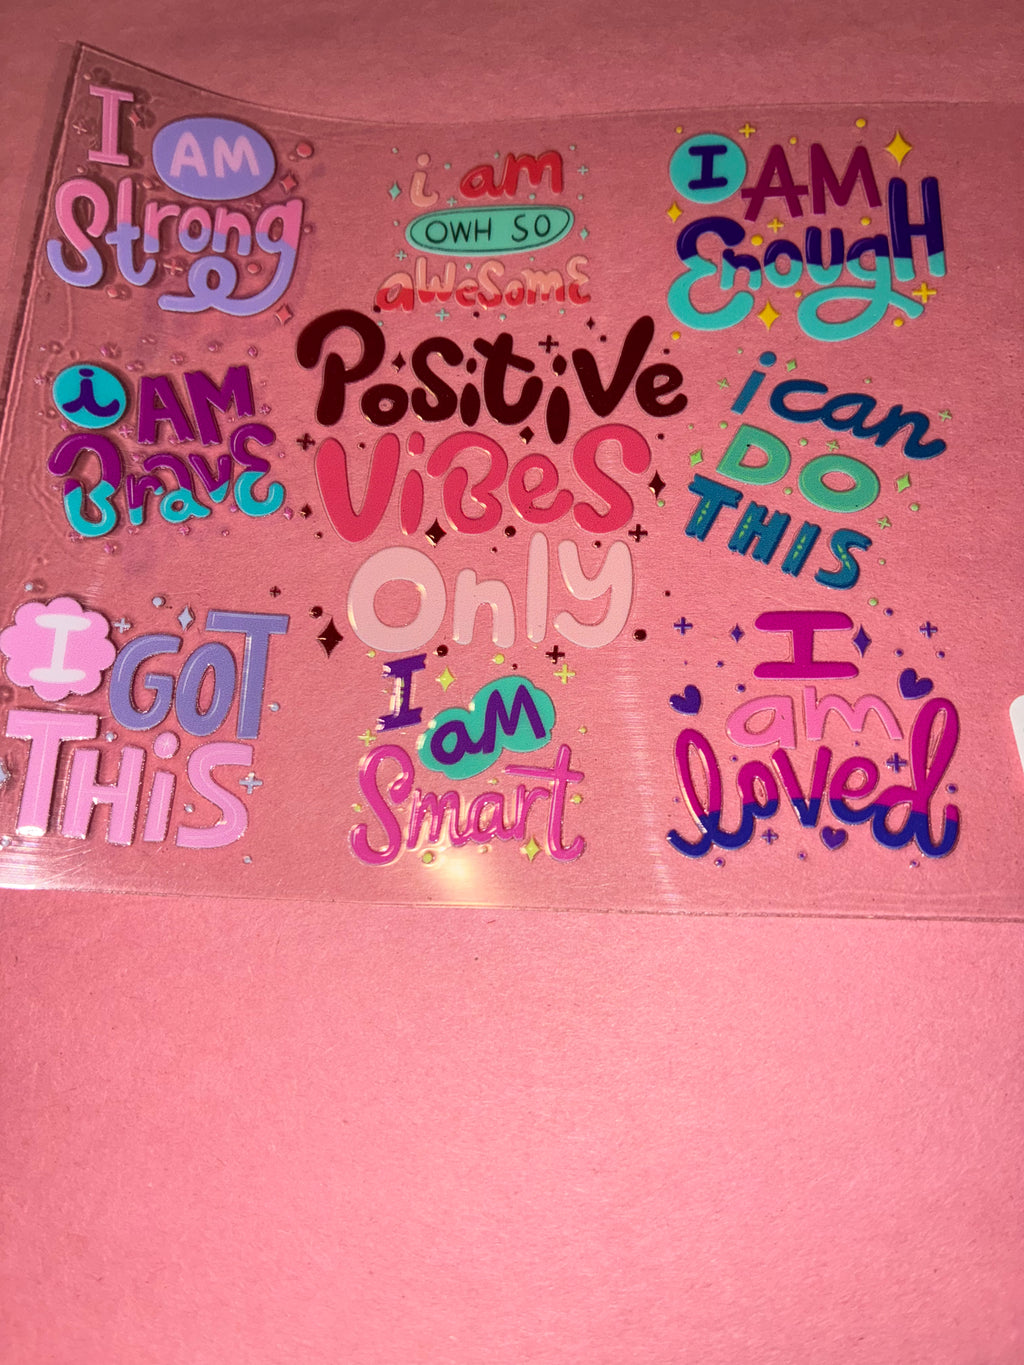 I
AM
Strong
i am
OWH SO
awesome
I AM
EnougH
i AM
BravE
PoSitiVe
ViBeS
Only
i can
DO
THIS
I GOT
THiS
I
aM
Smart
I
am
loved